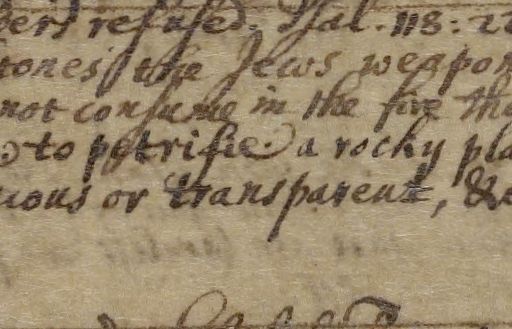 ders refused. Psal. 118: 22
tones, the Jews weapon
not consume in the fire Tho
to petrifie. a rocky pla
cious or transparent, &c